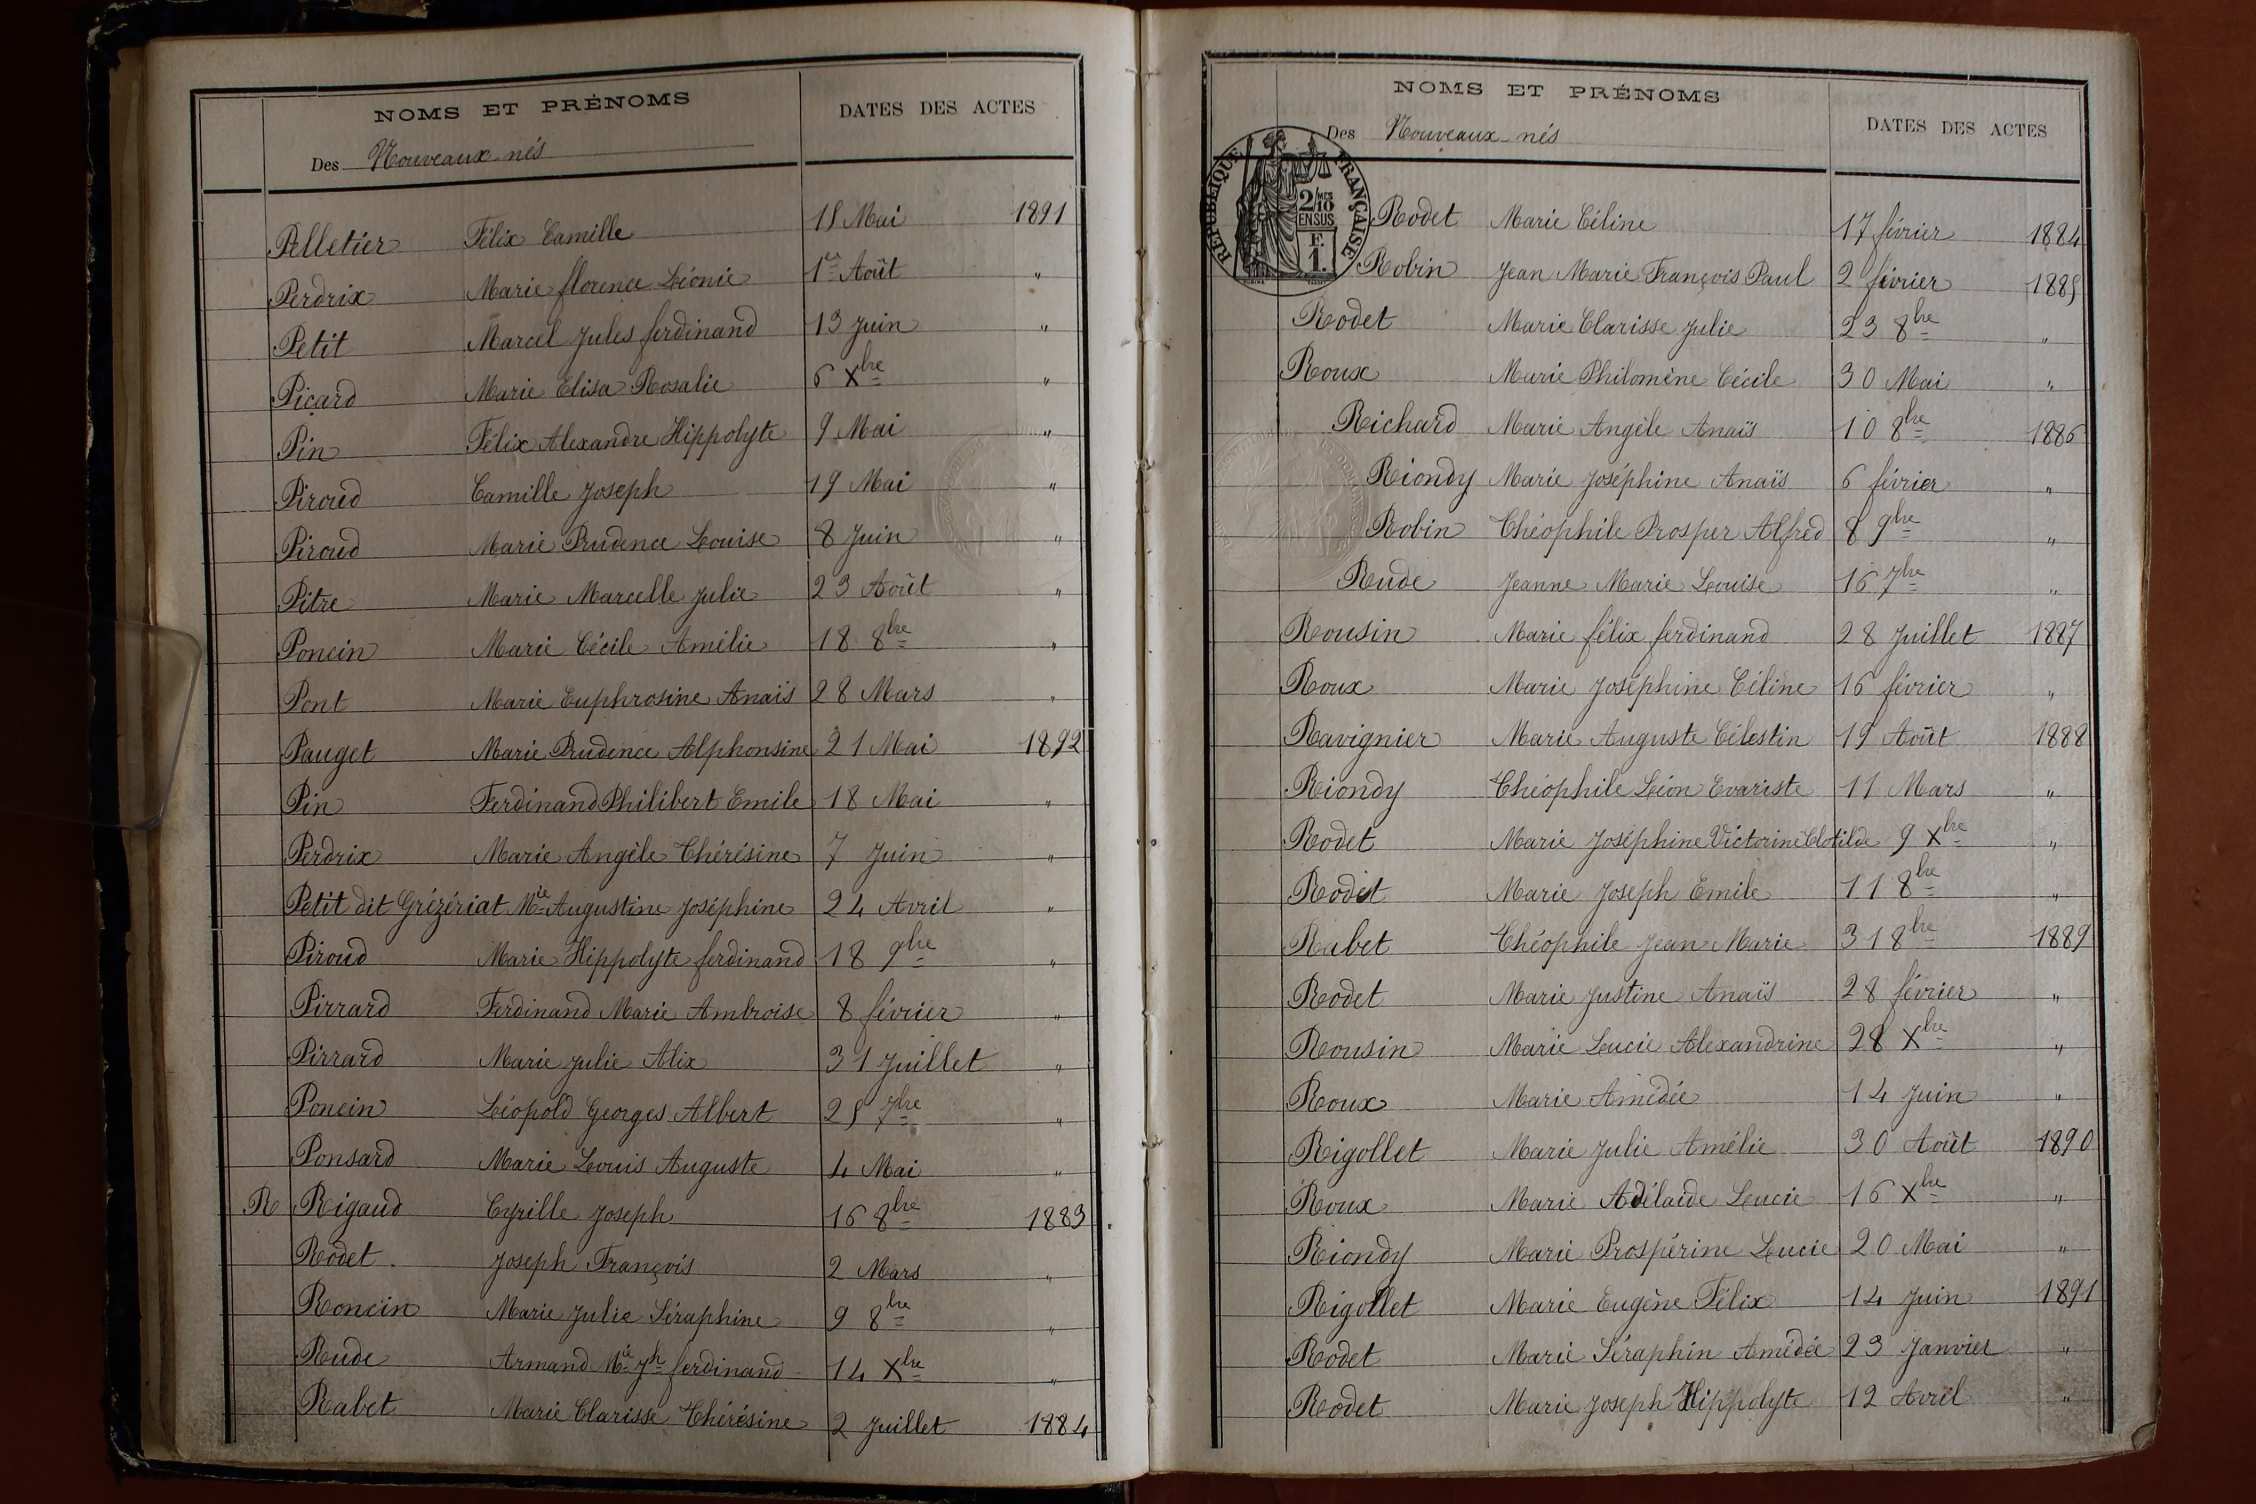 NOMS ET PRÉNOMS
DATES DES ACTES
Des Nouveaux-nés
Pelletier Félix Camille 18 Mai 1891
Perdrix Marie florence Léonie 1er Août "
Petit Marcel Jules ferdinand 13 Juin "
Picard Marie Elisa Rosalie 6 Xbre "
Pin Félix Alexandre Hippolyte 9 Mai "
Piroud Camille Joseph 19 Mai "
Piroud Marie Prudence Louise 8 Juin "
Pitre Marie Marcelle Julie 23 Août "
Poncin Marie Cécile Amélie 18 8bre "
Pont Marie Euphrosine Anaïs 28 Mars "
Pauget Marie Prudence Alphonsine 21 Mai 1892
Pin Ferdinand Philibert Emile 18 Mai "
Perdrix Marie Angèle Thérésine 7 Juin "
Petit dit Grézériat Mie Augustine Joséphine 24 Avril "
Piroud Marie Hippolyte ferdinand 18 9bre "
Pirrard Ferdinand Marie Ambroise 8 février "
Pirrard Marie Julie Alix 31 Juillet "
Poncin Léopold Georges Albert 25 7bre "
Ponsard Marie Louis Auguste 4 Mai "
R Rigaud Cyrille Joseph 16 8bre 1883
Rodet Joseph François 2 Mars "
Roncin Marie Julie Séraphine 9 8bre "
Rude Armand Mie Jh ferdinand 14 Xbre "
Rabet Marie Clarisse Thérésine 2 Juillet 1884
NOMS ET PRÉNOMS
DATES DES ACTES
Des Nouveaux-nés
RÉPUBLIQUE FRANÇAISE
2/10
EN SUS
F.
1.
Rodet Marie Céline 17 février 1884
Robin Jean Marie François Paul 2 février 1885
Rodet Marie Clarisse Julie 23 8bre "
Roux Marie Philomène Cécile 30 Mai "
Richard Marie Angèle Anaïs 10 8bre 1886
Riondy Marie Joséphine Anaïs 6 février "
Robin Théophile Prosper Alfred 8 9bre "
Rude Jeanne Marie Louise 16 7bre "
Rousin Marie félix ferdinand 28 Juillet 1887
Roux Marie Joséphine Céline 16 février "
Ravignier Marie Auguste Célestin 19 Août 1888
Riondy Théophile Léon Evariste 11 Mars "
Rodet Marie Joséphine Victorine Clotilde 9 Xbre "
Rodet Marie Joseph Emile 11 8bre "
Rabet Théophile Jean Marie 31 8bre 1889
Rodet Marie Justine Anaïs 28 février "
Rousin Marie Lucie Alexandrine 28 Xbre "
Roux Marie Amédée 14 Juin "
Rigollet Marie Julie Amélie 30 Août 1890
Roux Marie Adélaïde Lucie 16 Xbre "
Riondy Marie Prospérine Lucie 20 Mai "
Rigollet Marie Eugène Félix 14 Juin 1891
Rodet Marie Séraphin Amédée 23 Janvier "
Rodet Marie Joseph Hippolyte 12 Avril "